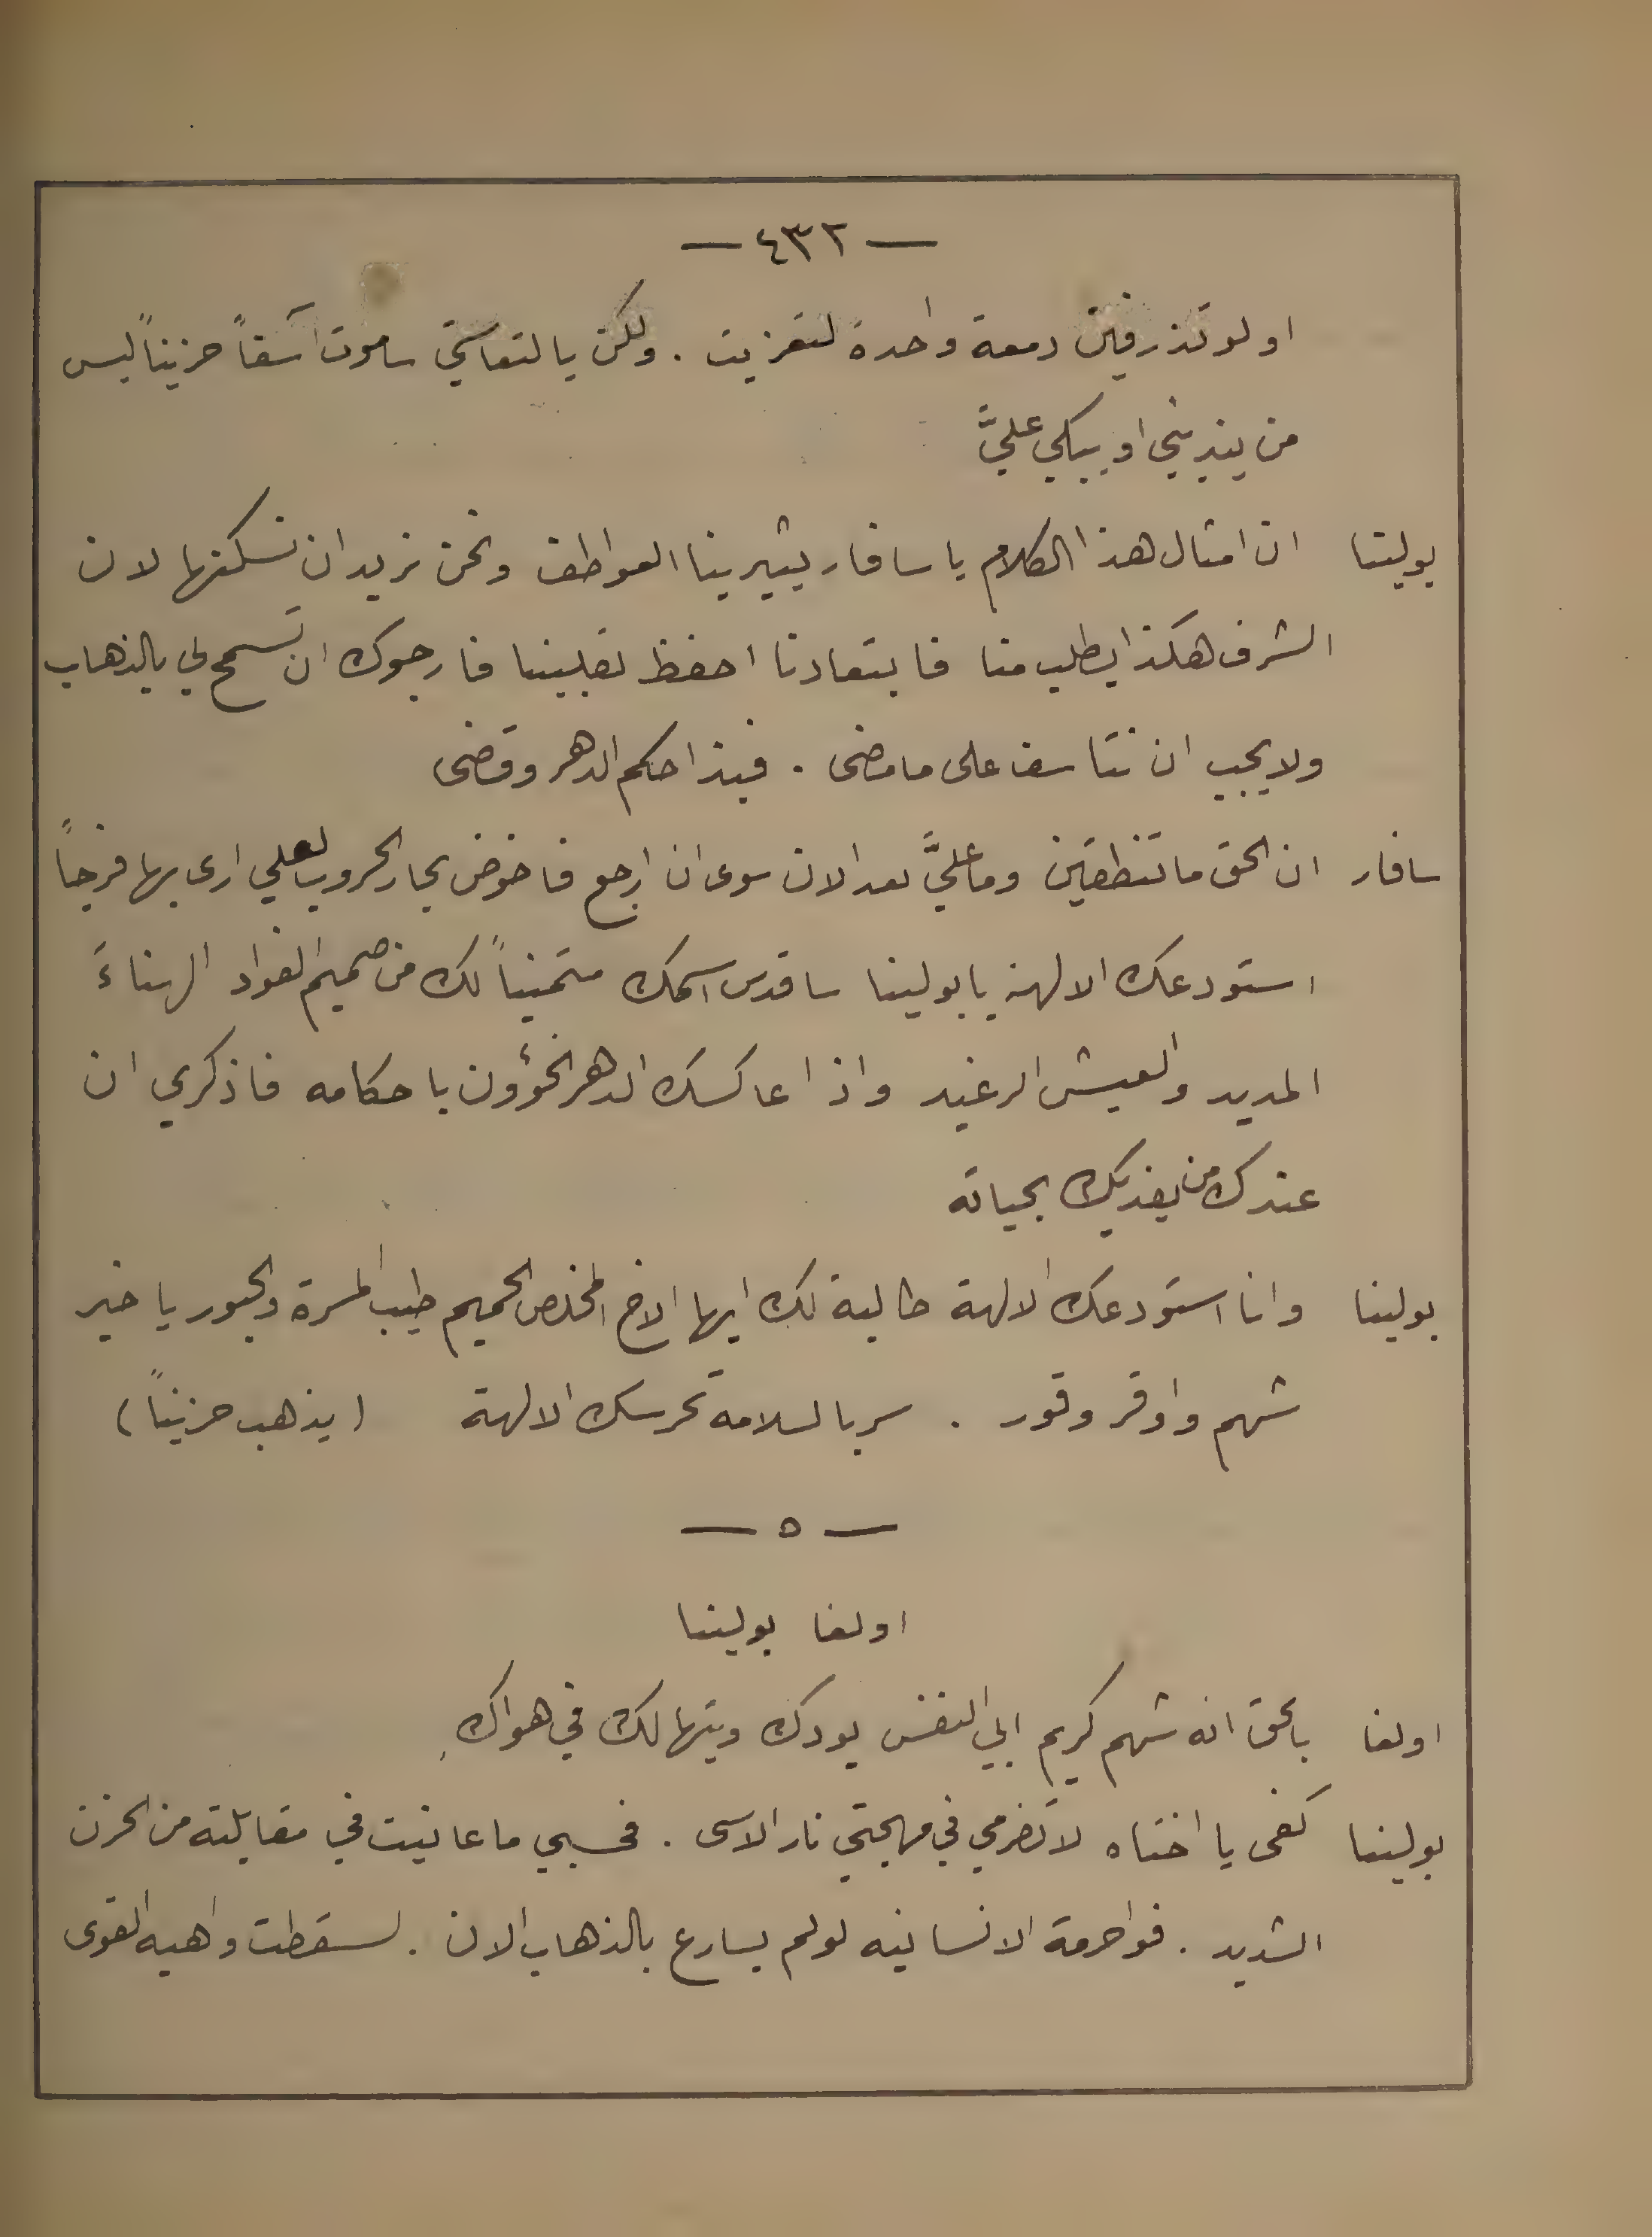 — ٤٣٢ —
او لو تذرفين دمعة واحدة لتعزيت . ولكن يا لتعاستي ساموت آسفاً حزيناً ليس
من يندبني او يبكي عليَّ
بولينا ان امثال هذا الكلام يا سافار يثير بنا العواطف ونحن نريد ان نسكنها لان
الشرف هكذا يطلب منا فابتعادنا احفظ لقلبينا فارجوك ان تسمح لي بالذهاب
ولا يجب ان نتاسف على ما مضى . فبذا حكم الدهر وقضى
سافار ان الحق ما تنطقين وما عليَّ بعد الان سوى ان ارجع فاخوض بحار الحروب لعلي ارى بها فرجاً
استودعك الالهة يا بولينا ساقدس اسمك متمنياً لك من صميم الفواد الهناءَ
المديد والعيش الرغيد واذا عاكسك الدهر الخؤون باحكامه فاذكري ان
عندك من يفديك بحياته
بولينا وانا استودعك الالهة طالبة لك ايها الاخ المخلص الحميم طيب المسرة والحبور يا خير
شهم واوقر وقور . سر بالسلامه تحرسك الالهة (يذهب حزيناً)
— ٥ —
اولغا بولينا
اولغا بالحق انه شهم كريم ابي النفس يودك ويتهالك في هواكِ
بولينا كفى يا اختاه لا تضرمي في مهجتي نار الاسى . فحسبي ما عانيت في مقابلته من الحزن
الشديد . فواحرمة الانسانيه لو لم يسارع بالذهاب الان . لسقطت واهيه القوى